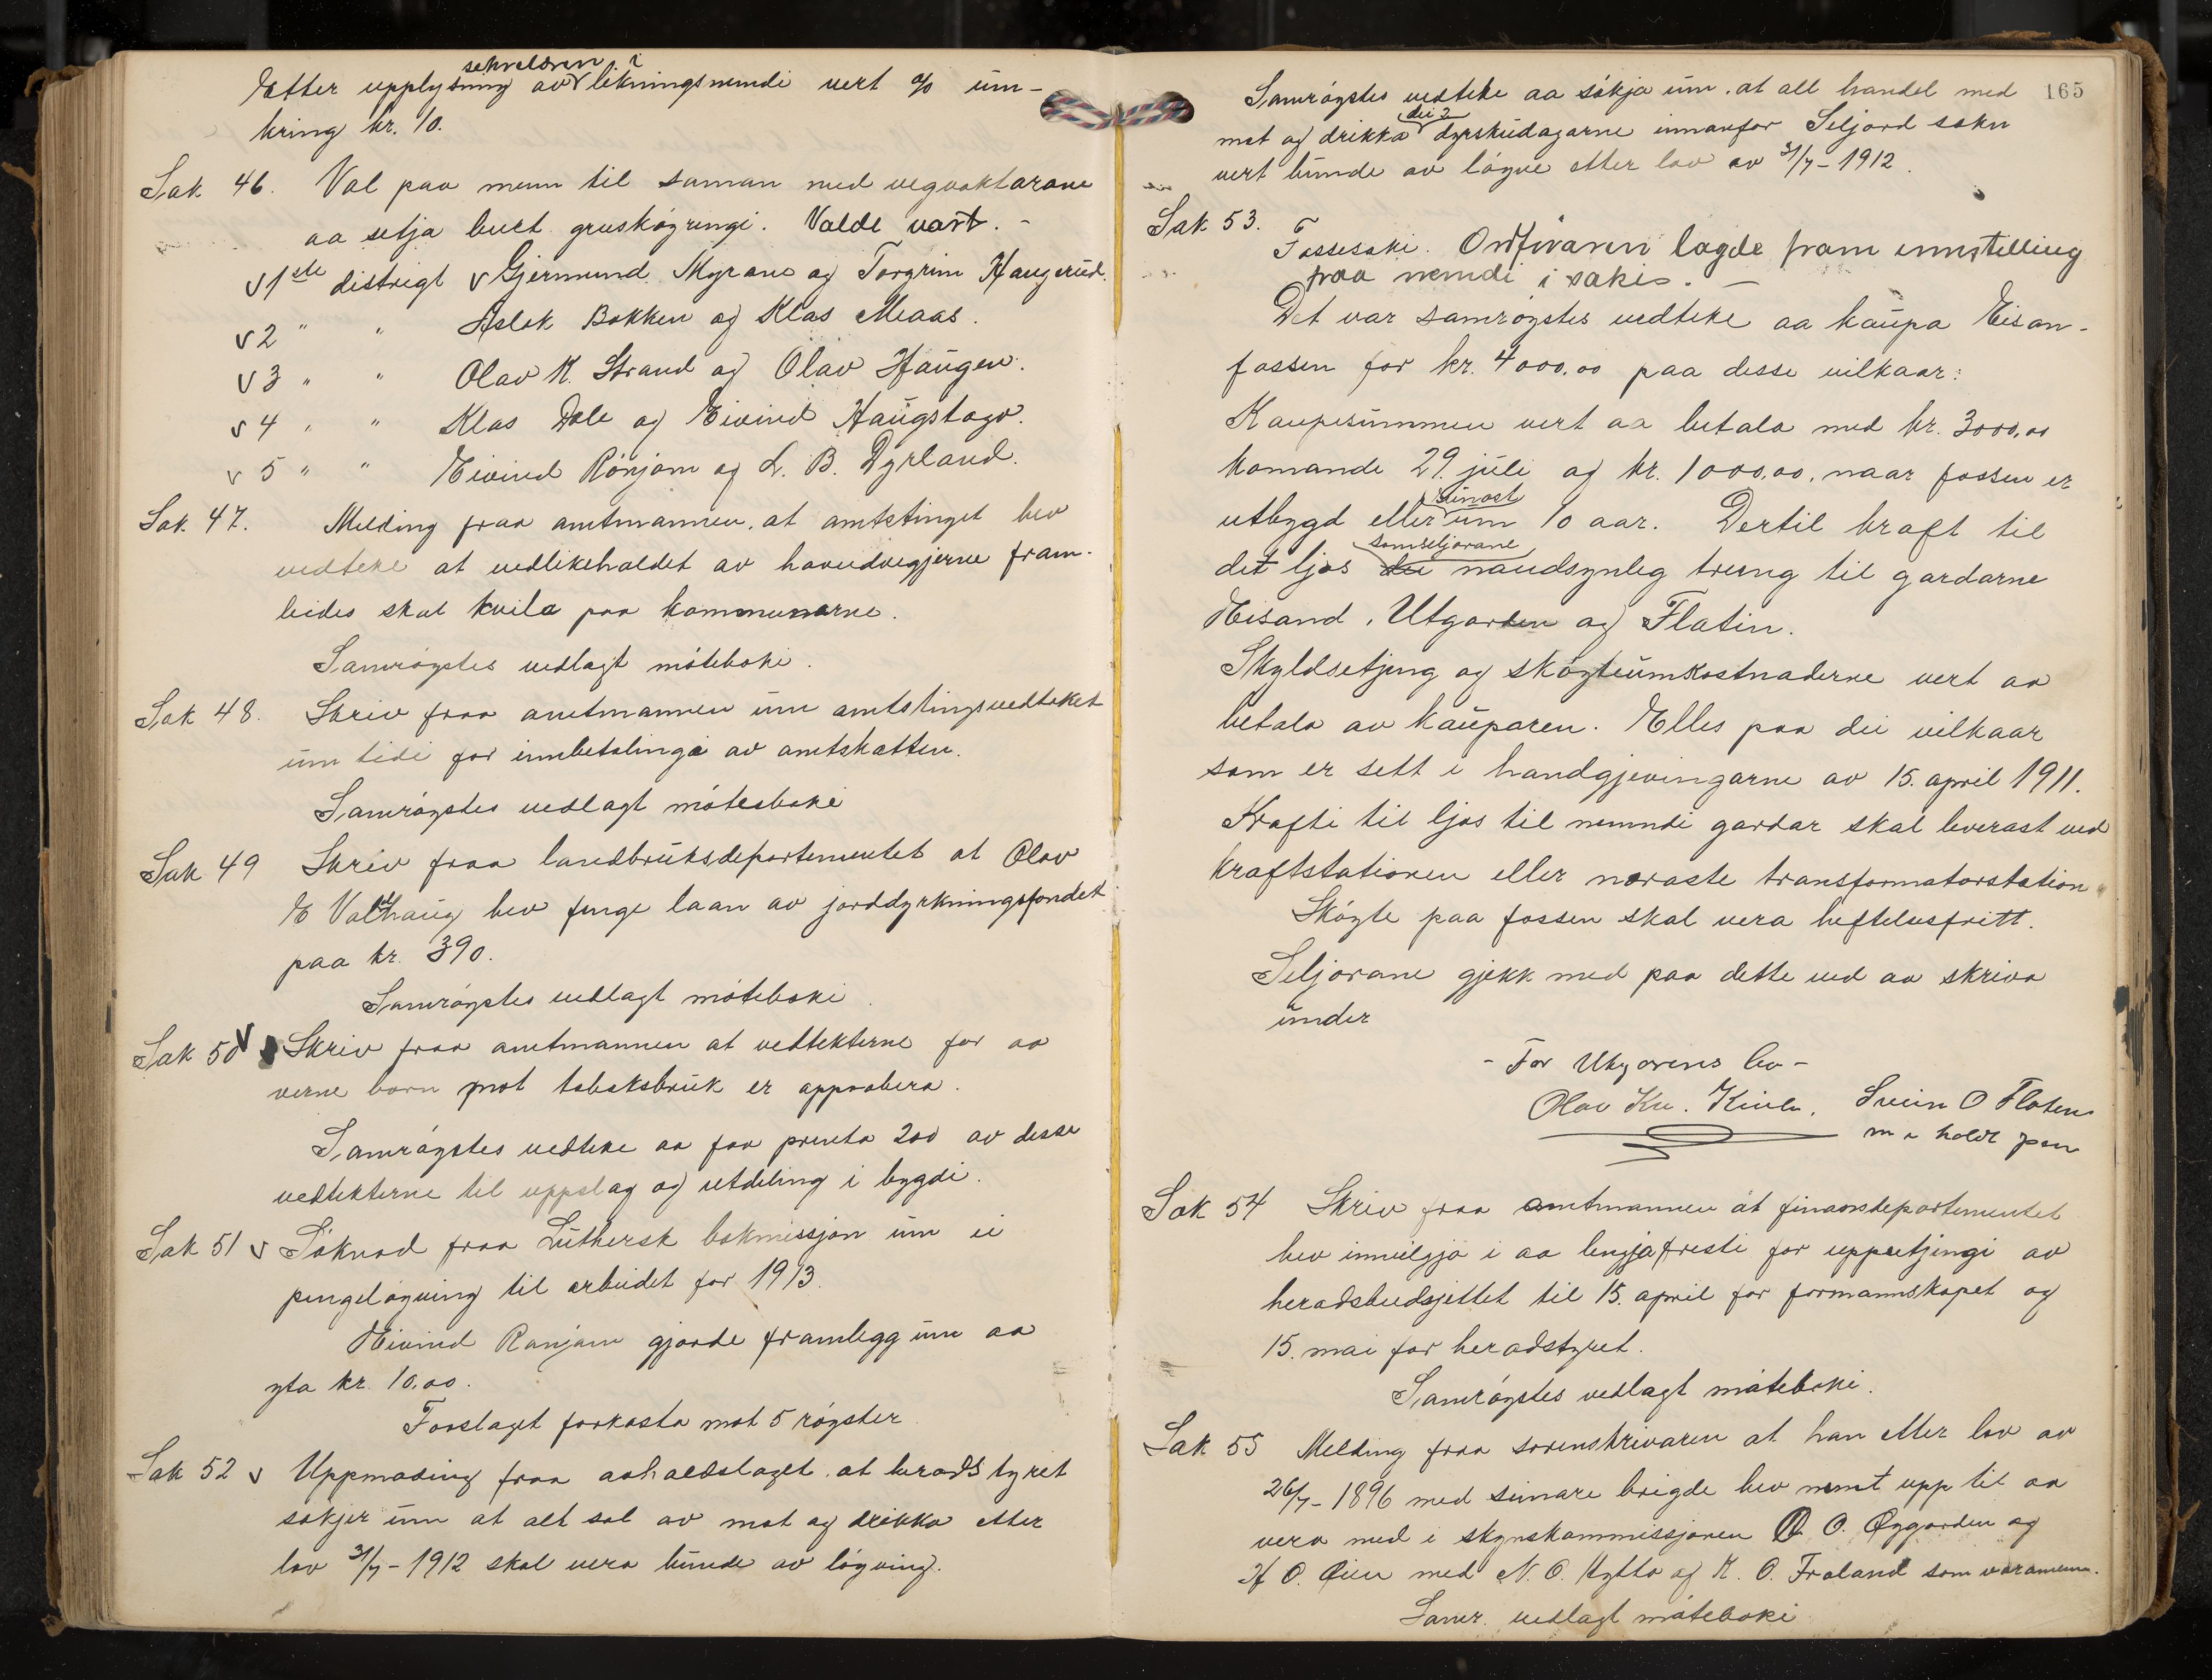 Etter upplysning av sekretæren i likningsnemdi vert % um-
kring kr. 10.
Sak 46. Val paa menn til saman med vegvaktarane
aa setja burt gruskøyringi. Valde vart. -
V 1ste distrigt V Gjermund Myrane og Torgrim Haugerud.
V 2 " " Aslak Bakken og Klas Meaas.
V 3 " " Olav K. Strand og Olav Haugen.
V 4 " " Klas Dale og Eivind Haugstago.
V 5 " " Eivind Rønjom og L. B. Dyrland.
Sak 47. Melding fraa amtmannen, at amtstinget hev
vedteke at vedlikehaldet av hovudvegjerne fram-
leides skal kvila paa kommunarne.
Samrøystes vedlagt møteboki.
Sak 48. Skriv fraa amtmannen um amtstingsvedtaket
um tidi for innbetalingi av amtskatten.
Samrøystes vedlagt møtesboki
Sak 49 Skriv fraa landbruksdepartementet at Olav
E Valhaug hev fenge laan av jorddyrkningsfondet
paa kr. 390.
Samrøystes vedlagt møteboki.
Sak 50 V Skriv fraa amtmannen at vedtekterne for aa
verne born mot tobaksbruk er approbera.
Samrøystes vedteke aa faa prenta 200 av desse
vedtekterne til uppslag og utdeling i bygdi.
Sak 51 V Søknad fraa Luthersk bokmissjon um ei
pengeløyving til arbeidet for 1913.
Eivind Rønjom gjorde framlegg um aa
yta kr. 10,00.
Forslaget forkasta mot 5 røyster
Sak 52 V Uppmoding fraa aahaldslaget, at heradstyret
søkjer um at alt sal av mat og drikka etter
lov 31/7-1912 skal vera bunde av løyving.
165
Samrøystes vedteke aa søkja um, at all handel med
mat og drikka dei 2 dyrskudagarne innanfor Seljord sokn
vert bunde av løyve etter lov av 31/7-1912.
Sak 53. Fossesaki. Ordføraren lagde fram innstelling
fraa nemdi i saki. -
Det var samrøystes vedteke aa kaupa Eisan-
fossen for kr. 4000,00 paa desse vilkaar:
Kaupesummen vert aa betala med kr. 3000,00
komande 29. juli og kr. 1000,00, naar fossen er
utbygd eller seinast um 10 aar. Dertil kraft til
det ljos som seljarane dei naudsynleg treng til gardarne
Eisand, Utgarden og Flatin.
Skyldsetjing og skøyteumkostnaderne vert aa
betala av kauparen. Elles paa dei vilkaar
som er sett i handgjevingarne av 15. april 1911.
Krafti til ljos til nemndi gardar skal leverast ved
kraftstationen eller næraste transformatorstation
Skøyte paa fossen skal vera heftelsesfritt.
Seljarane gjekk med paa dette ved aa skriva
under
- For Utgarens bu -
Olav Kn. Svein O Flaten
m i holdt pen
Sak 54 Skriv fraa amtmannen at finansdepartementet
hev innvilgja i aa lengja fresti for uppsetjingi av
heradsbudsjettet til 15. april for formannskapet og
15. mai for heradstyret.
Samrøystes vedlagt møteboki.
Sak 55 Melding fraa sorenskrivaren at han etter lov av
26/7-1896 med seinare brigde hev nemnt upp til aa
vera med i skynskommissjonen O. O. Øygarden og
H O. Øien med N. O. Hytta og K. O. Froland som varamenn.
Samr. vedlagt møteboki